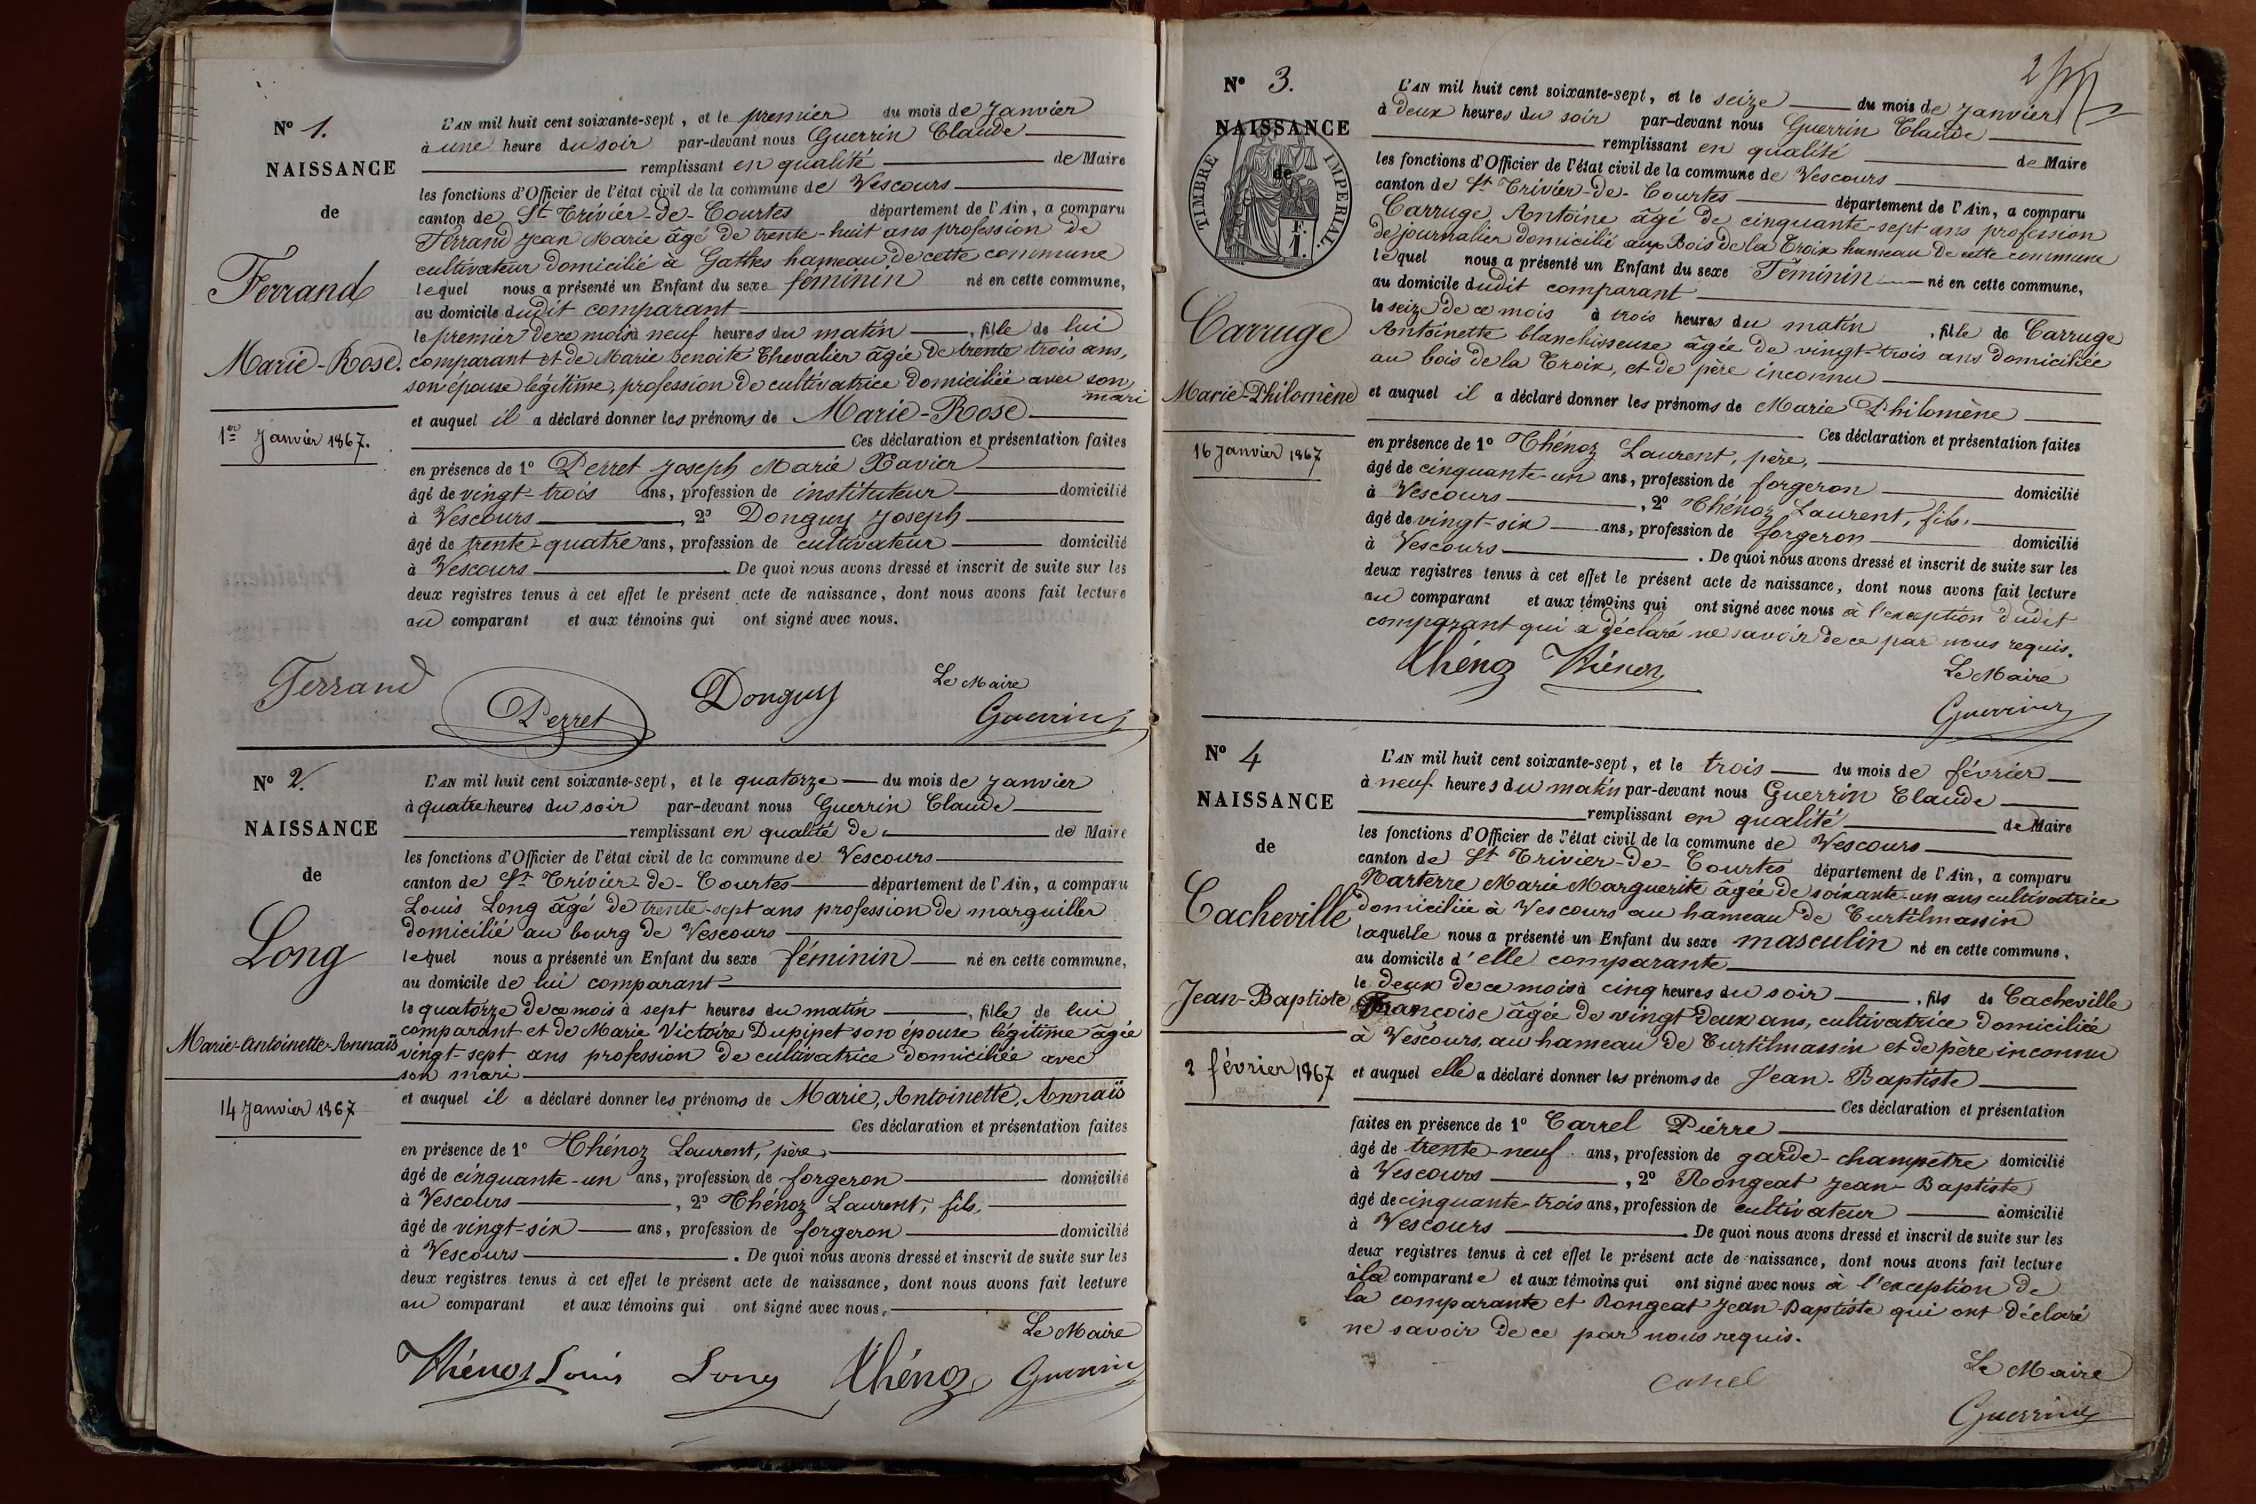 N° 1.
NAISSANCE
de
Ferrand
Marie-Rose.
1er Janvier 1867.
L'AN mil huit cent soixante-sept, et le premier du mois de Janvier
à une heure du soir par-devant nous Guerrin Claude
remplissant en qualité de Maire
les fonctions d'Officier de l'état civil de la commune de Vescours
canton de St Trivier-de-Courtes département de l'Ain, a comparu
Ferrand Jean Marie âgé de trente-huit ans profession de
cultivateur domicilié à Gattes hameau de cette commune
lequel nous a présenté un Enfant du sexe féminin né en cette commune,
au domicile dudit comparant
le premier de ce mois à neuf heures du matin, fille de lui
comparant et de Marie Benoite Chevalier âgée de trente trois ans,
son épouse légitime, profession de cultivatrice domiciliée avec son
mari
et auquel il a déclaré donner les prénoms de Marie-Rose
Ces déclaration et présentation faites
en présence de 1° Perret Joseph Marie Xavier
âgé de vingt-trois ans, profession de instituteur domicilié
à Vescours, 2° Donguy Joseph
âgé de trente-quatre ans, profession de cultivateur domicilié
à Vescours. De quoi nous avons dressé et inscrit de suite sur les
deux registres tenus à cet effet le présent acte de naissance, dont nous avons fait lecture
au comparant et aux témoins qui ont signé avec nous.
Ferrand Perret Donguy Le Maire
Guerrin
N° 2.
NAISSANCE
de
Long
Marie-Antoinette-Annaïs
14 Janvier 1867
L'AN mil huit cent soixante-sept, et le quatorze du mois de Janvier
à quatre heures du soir par-devant nous Guerrin Claude
remplissant en qualité de de Maire
les fonctions d'Officier de l'état civil de la commune de Vescours
canton de St Trivier-de-Courtes département de l'Ain, a comparu
Louis Long âgé de trente-sept ans profession de marguiller
domicilié au bourg de Vescours
lequel nous a présenté un Enfant du sexe féminin né en cette commune,
au domicile de lui comparant
le quatorze de ce mois à sept heures du matin, fille de lui
comparant et de Marie Victoire Dupipet son épouse légitime âgée
vingt-sept ans profession de cultivatrice domiciliée avec
son mari
et auquel il a déclaré donner les prénoms de Marie, Antoinette, Annaïs
Ces déclaration et présentation faites
en présence de 1° Thénoz Laurent, père,
âgé de cinquante-un ans, profession de forgeron domicilié
à Vescours, 2° Thénoz Laurent, fils,
âgé de vingt-six ans, profession de forgeron domicilié
à Vescours. De quoi nous avons dressé et inscrit de suite sur les
deux registres tenus à cet effet le présent acte de naissance, dont nous avons fait lecture
au comparant et aux témoins qui ont signé avec nous.
Le Maire
Thénoz Louis Long Thénoz Guerrin
2
N° 3.
NAISSANCE
de
TIMBRE IMPERIAL
F. 1.
Carruge
Marie-Philomène
16 Janvier 1867
L'AN mil huit cent soixante-sept, et le seize du mois de Janvier
à deux heures du soir par-devant nous Guerrin Claude
remplissant en qualité de Maire
les fonctions d'Officier de l'état civil de la commune de Vescours
canton de St Trivier-de-Courtes département de l'Ain, a comparu
Carruge Antoine âgé de cinquante-sept ans profession
de journalier domicilié aux Bois de la Croix hameau de cette commune
lequel nous a présenté un Enfant du sexe Féminin né en cette commune,
au domicile dudit comparant
le seize de ce mois à trois heures du matin, fille de Carruge
Antoinette blanchisseuse âgée de vingt-trois ans domiciliée
au bois de la Croix, et de père inconnu
et auquel il a déclaré donner les prénoms de Marie Philomène
Ces déclaration et présentation faites
en présence de 1° Thénoz Laurent, père,
âgé de cinquante-un ans, profession de forgeron domicilié
à Vescours, 2° Thénoz Laurent, fils,
âgé de vingt-six ans, profession de forgeron domicilié
à Vescours. De quoi nous avons dressé et inscrit de suite sur les
deux registres tenus à cet effet le présent acte de naissance, dont nous avons fait lecture
au comparant et aux témoins qui ont signé avec nous à l'exception dudit
comparant qui a déclaré ne savoir de ce par nous requis.
Thénoz Thénoz Le Maire
Guerrin
N° 4
NAISSANCE
de
Cacheville
Jean-Baptiste
2 février 1867
L'AN mil huit cent soixante-sept, et le trois du mois de février
à neuf heures du matin par-devant nous Guerrin Claude
remplissant en qualité de Maire
les fonctions d'Officier de l'état civil de la commune de Vescours
canton de St Trivier-de-Courtes département de l'Ain, a comparu
Marterre Marie Marguerite âgée de soixante-un ans cultivatrice
domiciliée à Vescours au hameau de Curtilmassin
laquelle nous a présenté un Enfant du sexe masculin né en cette commune,
au domicile d'elle comparante
le deux de ce mois à cinq heures du soir, fils de Cacheville
Françoise âgée de vingt deux ans, cultivatrice domiciliée
à Vescours, au hameau de Curtilmassin et de père inconnu
et auquel elle a déclaré donner les prénoms de Jean-Baptiste
Ces déclaration et présentation
faites en présence de 1° Carrel Pierre
âgé de trente-neuf ans, profession de garde-champêtre domicilié
à Vescours, 2° Rongeat Jean-Baptiste
âgé de cinquante-trois ans, profession de cultivateur domicilié
à Vescours. De quoi nous avons dressé et inscrit de suite sur les
deux registres tenus à cet effet le présent acte de naissance, dont nous avons fait lecture
à la comparante et aux témoins qui ont signé avec nous à l'exception de
la comparante et Rongeat Jean-Baptiste qui ont déclaré
ne savoir de ce par nous requis.
Le Maire
Carrel
Guerrin